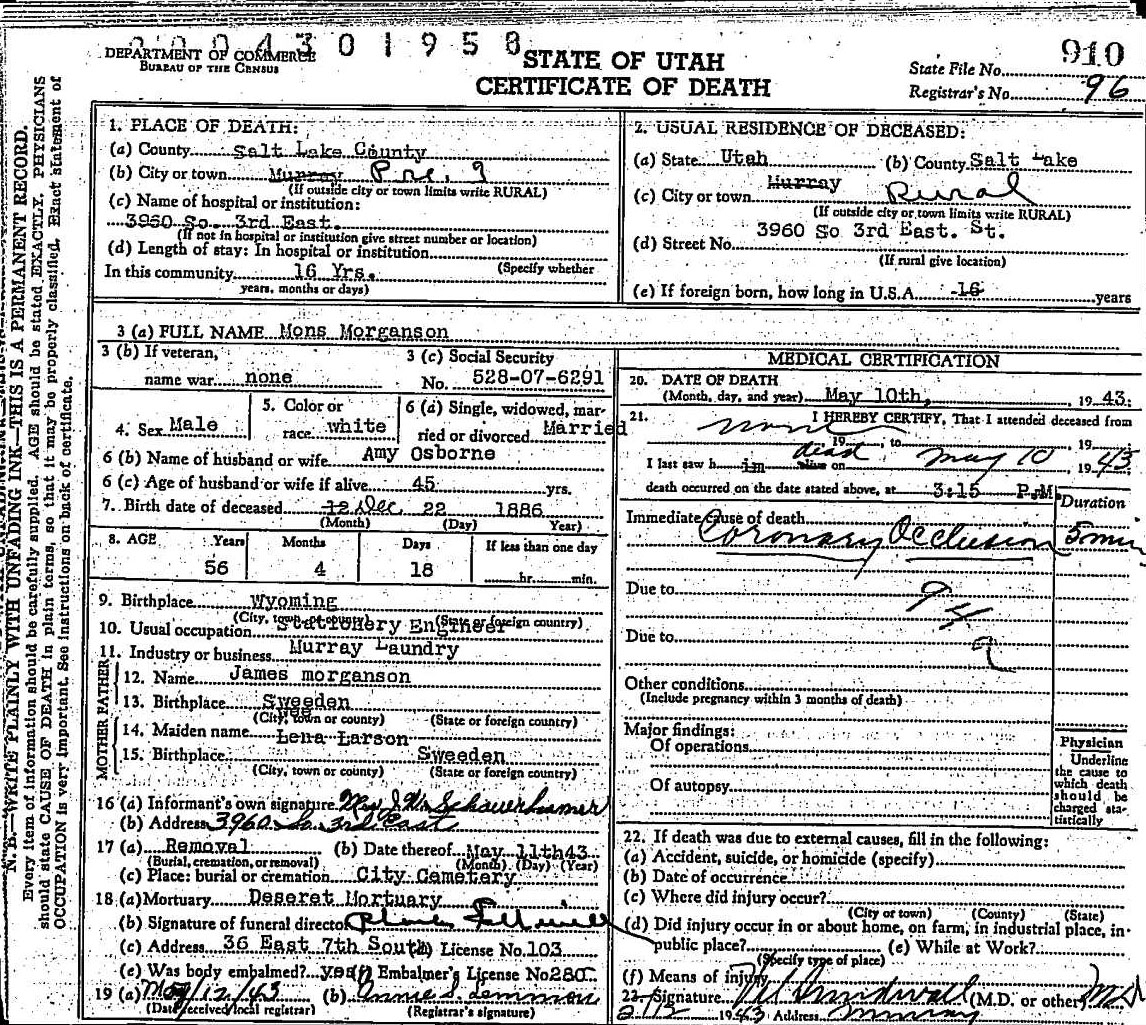 2 0 0 4 3 0 1 9 5 8
DEPARTMENT OF COMMERCE
BUREAU OF THE CENSUS
STATE OF UTAH
CERTIFICATE OF DEATH
910
State File No.
Registrar's No. 96
N. B.—WRITE PLAINLY WITH UNFADING INK—THIS IS A PERMANENT RECORD.
Every item of information should be carefully supplied. AGE should be stated EXACTLY. PHYSICIANS
should state CAUSE OF DEATH in plain terms, so that it may be properly classified. Exact statement of
OCCUPATION is very important. See instructions on back of certificate.
1. PLACE OF DEATH:
(a) County Salt Lake County
(b) City or town Murray Pre. 9
(If outside city or town limits write RURAL)
(c) Name of hospital or institution:
3960 So. 3rd East.
(If not in hospital or institution give street number or location)
(d) Length of stay: In hospital or institution
In this community 16 Yrs. (Specify whether
years, months or days)
2. USUAL RESIDENCE OF DECEASED:
(a) State Utah (b) County Salt Lake
(c) City or town Murray Rural
(If outside city or town limits write RURAL)
(d) Street No. 3960 So 3rd East. St.
(If rural give location)
(e) If foreign born, how long in U.S.A. 16 years
3 (a) FULL NAME Mons Morganson
3 (b) If veteran,
name war none
3 (c) Social Security
No. 528-07-6291
4. Sex Male
5. Color or
race white
6 (a) Single, widowed, mar-
ried or divorced Married
6 (b) Name of husband or wife Amy Osborne
6 (c) Age of husband or wife if alive 45 yrs.
7. Birth date of deceased 12 Dec 22 1886
(Month) (Day) Year)
8. AGE Years Months Days If less than one day
56 4 18 hr. min.
9. Birthplace Wyoming
(City, town, or county) (State or foreign country)
10. Usual occupation Stationery Engineer
11. Industry or business Murray Laundry
FATHER
12. Name James morganson
13. Birthplace Sweeden
(City, town or county) (State or foreign country)
MOTHER
14. Maiden name Lena Larson
15. Birthplace Sweeden
(City, town or county) (State or foreign country)
16 (a) Informant's own signature Mrs J. W. Schauerhamer
(b) Address 3960 So. 3rd East
17 (a) Removal (b) Date thereof May 11th43
(Burial, cremation, or removal) (Month) (Day) (Year)
(c) Place: burial or cremation City Cemetery
18 (a) Mortuary Deseret Mortuary
(b) Signature of funeral director
(c) Address 36 East 7th South (d) License No. 103
(e) Was body embalmed? yes (f) Embalmer's License No 280
19 (a) May/12/43 (b) Annie S. Lemmon
(Date received local registrar) (Registrar's signature)
MEDICAL CERTIFICATION
20. DATE OF DEATH
(Month, day, and year) May 10th, 19 43.
21. I HEREBY CERTIFY, That I attended deceased from
none 19 , to 19
I last saw h im dead alive on May 10 19 43
death occurred on the date stated above, at 3:15 P.M.
Duration
Immediate cause of death
Coronary Occlusion 5 min
Due to 94
Due to a
Other conditions
(Include pregnancy within 3 months of death)
Major findings:
Of operations
Of autopsy
Physician
Underline
the cause to
which death
should be
charged sta-
tistically
22. If death was due to external causes, fill in the following:
(a) Accident, suicide, or homicide (specify)
(b) Date of occurrence
(c) Where did injury occur?
(City or town) (County) (State)
(d) Did injury occur in or about home, on farm, in industrial place, in
public place? (e) While at Work?
(Specify type of place)
(f) Means of injury
23 Signature (M.D. or other) M.D.
1943 Address Murray